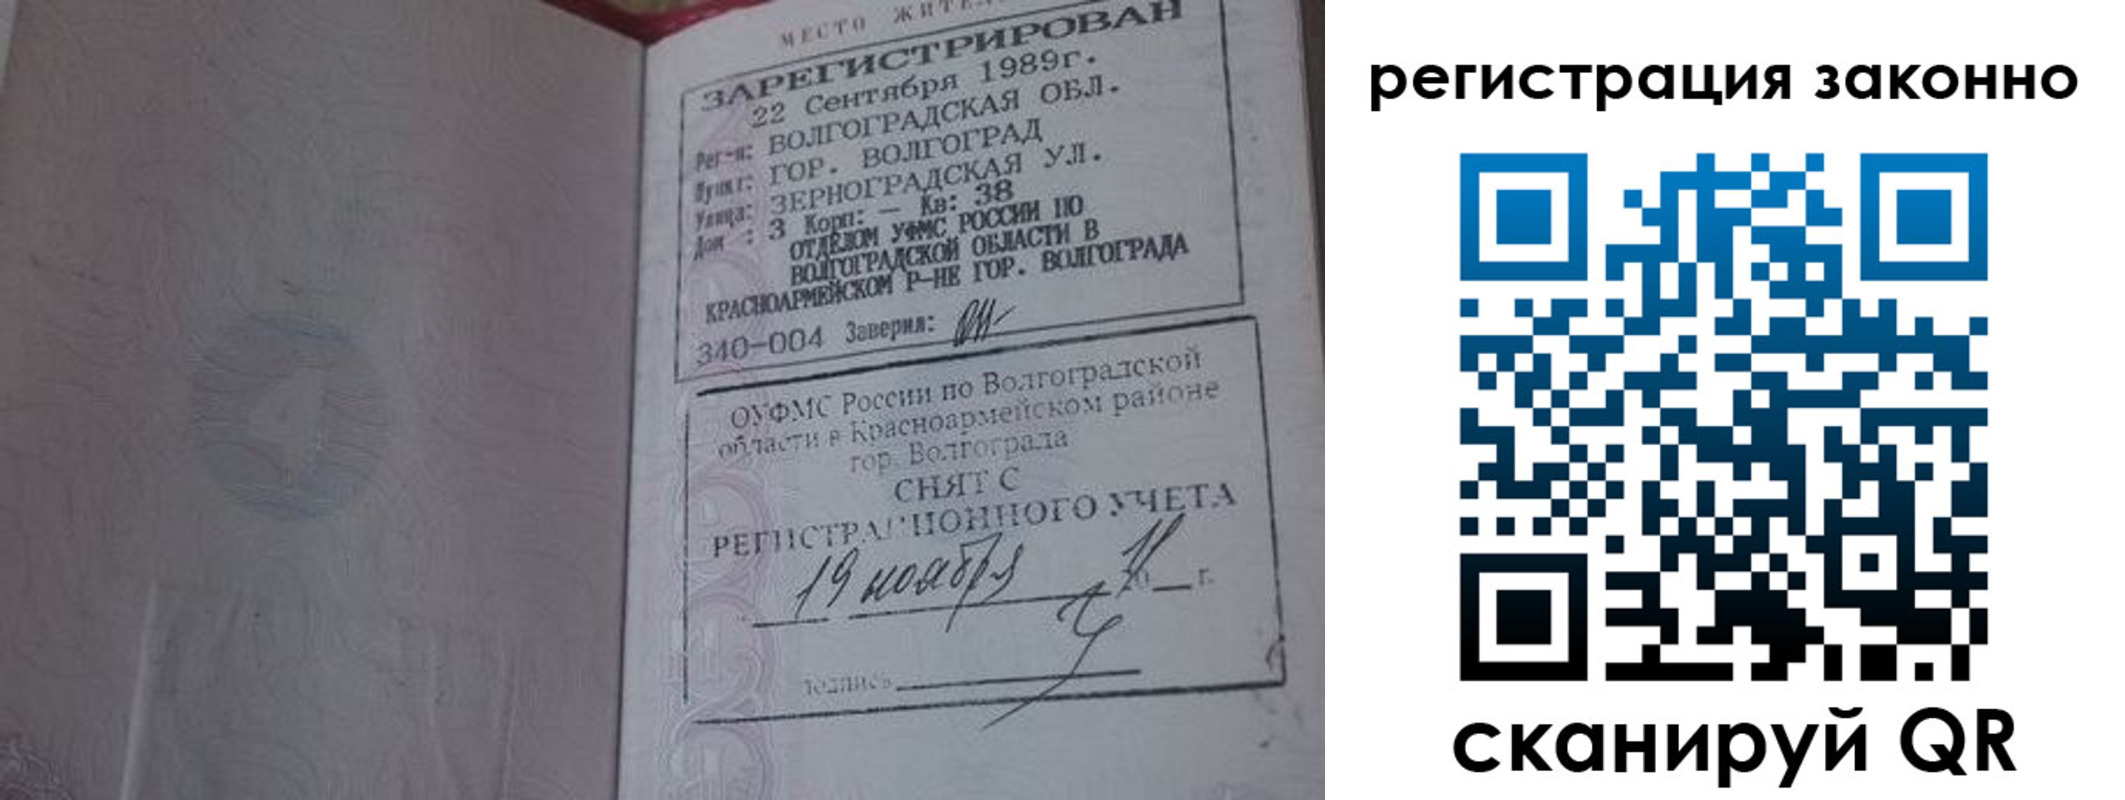 МЕСТО ЖИТЕЛ
ЗАРЕГИСТРИРОВАН
22 Сентября 1989г.
Рег-н: ВОЛГОГРАДСКАЯ ОБЛ.
Пункт: ГОР. ВОЛГОГРАД
Улица: ЗЕРНОГРАДСКАЯ УЛ.
Дом : 3 Корп: — Кв: 38
ОТДЕЛОМ УФМС РОССИИ ПО
ВОЛГОГРАДСКОЙ ОБЛАСТИ В
КРАСНОАРМЕЙСКОМ Р-НЕ ГОР. ВОЛГОГРАДА
340-004 Заверил:
ОУФМС России по Волгоградской
области в Красноармейском районе
гор. Волгограда
СНЯТ С
РЕГИСТРАЦИОННОГО УЧЕТА
19 ноября 20 г.
подпись
регистрация законно
сканируй QR